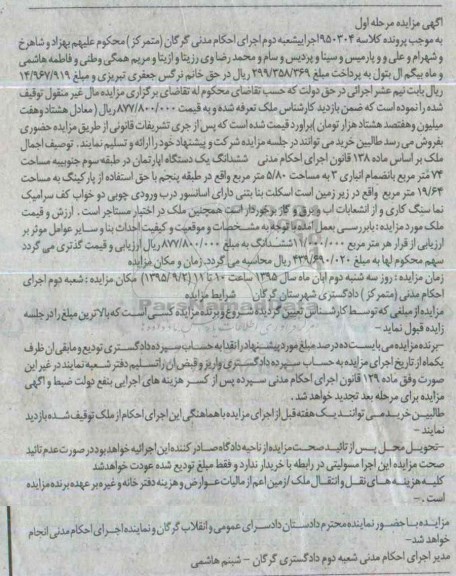 آگهی مزایده مرحله اول
به موجب پرونده کلاسه ۹۵۰۳۰۴ اجراییشعبه دوم اجرای احکام مدنی گرگان (متمرکز) محکوم علیهم بهزاد و شاهرخ
و شهرام و علی و و پارمیس و سینا و پردیس و سام و محمد رضا وی رزیتا و ازیتا و مریم همگی وطنی و فاطمه هاشمی
و ماه بیگم ال بتول به پرداخت مبلغ ۲۹۹/۳۵۸/۳۶۹ ریال در حق خانم نرگس جعفری تبریزی و مبلغ ۱۴/۹۶۷/۹۱۹
ریال بابت نیم عشر اجرائی در حق دولت که حسب تقاضای محکوم له تقاضای برگزاری مزایده مال غیر منقول توقیف
شده را نموده است که ضمن بازدید کارشناس ملک تعرفه شده و به قیمت ۸۷۷/۸۰۰/۰۰۰ ریال (معادل هشتاد وهفت
میلیون وهفتصد هشتاد هزار تومان) براورد قیمت شده است که پس از جری تشریفات قانونی از طریق مزایده حضوری
بفروش می رسد طالبین خرید می توانند در جلسه مزایده شرکت و پیشنهاد خود را ارائه و تسلیم نمایند . توصیف اجمال
ملک بر اساس ماده ۱۳۸ قانون اجرای احکام مدنی ششدانگ یک دستگاه اپارتمان در طبقه سوم جنوبیه مساحت
۷۴ متر مربع بانضمام انباری ۳ به مساحت ۵/۸۰ متر مربع واقع در طبقه پنجم با حق استفاده از پارکینگ به مساحت
۱۹/۶۴ متر مربع واقع در زیر زمین است اسکلت بنا بتنی دارای اسانسور درب ورودی چوبی دو خواب کف سرامیک
نما سنگ کاری و از انشعابات اب و برق و گاز برخوردار است همچنین ملک در اختیار مستاجر است . ارزش و قیمت
ملک مورد مزایده : بابررسی بعمل آمده با توجه به مشخصات و موقعیت و کیفیت احداث بنا و سایر عوامل موثر بر
ارزیابی از قرار هر متر مربع ۱۱/۰۰۰/۰۰۰ششدانگ به مبلغ ۸۷۷/۸۰۰/۰۰۰ ریال ارزیابی و قیمت گذاری می گردد
سهم محکوم لها به مبلغ ۴۳۹/۶۹۰/۰۲۰ ریال محاسبه می گردد. زمان و مکان مزایده
زمان مزایده : روز سه شنبه دوم ابان ماه سال ۱۳۹۵ ساعت ۱۰ تا ۱۱ (۱۳۹۵/۹/۲) مکان مزایده : شعبه دوم اجرای
احکام مدنی (متمرکز) دادگستری شهرستان گرگان شرایط مزایده
مزایده از مبلغی که توسط کارشناس تعیین گردیده شروع و برنده مزایده کسی است که بالاترین مبلغ را در جلسه
زایده قبول نماید -
-برنده مزایده می بایست ده در صد مبلغ مورد پیشنهاد را نقدا به حساب سپرده دادگستری تودیع و مابقی ان ظرف
یکماه از تاریخ اجرای مزایده به حساب سپرده دادگستری واریز و قبض ان را تسلیم دفتر شعبه نمایند در غیر این
صورت وفق ماده ۱۲۹ قانون اجرای احکام مدنی سپرده پس از کسر هزینه های اجرایی بنفع دولت ضبط و آگهی
مزایده برای مرحله بعد تجدید خواهد شد .
طالبین خرید می توانند یک هفته قبل از اجرای مزایده با هماهنگی این اجرای احکام از ملک توقیف شده بازدید
نمایند -
-تحویل محل پس از تائید صحت مزایده از ناحیه دادگاه صادر کننده این اجرائیه خواهد بود در صورت عدم تائید
صحت مزایده این اجرا مسولیتی در رابطه با خریدار ندارد و فقط مبلغ تودیع شده عودت خواهد شد
کلیه هزینه های نقل و انتقال ملک /زمین اعم از مالیات عوارض و هزینه دفتر خانه و غیره بر عهده برنده مزایده
است . -
مزایده با حضور نماینده محترم دادستان دادسرای عمومی و انقلاب گرگان و نماینده اجرای احکام مدنی انجام
خواهد شد-
مدیر اجرای احکام مدنی شعبه دوم دادگستری گرگان - شبنم هاشمی